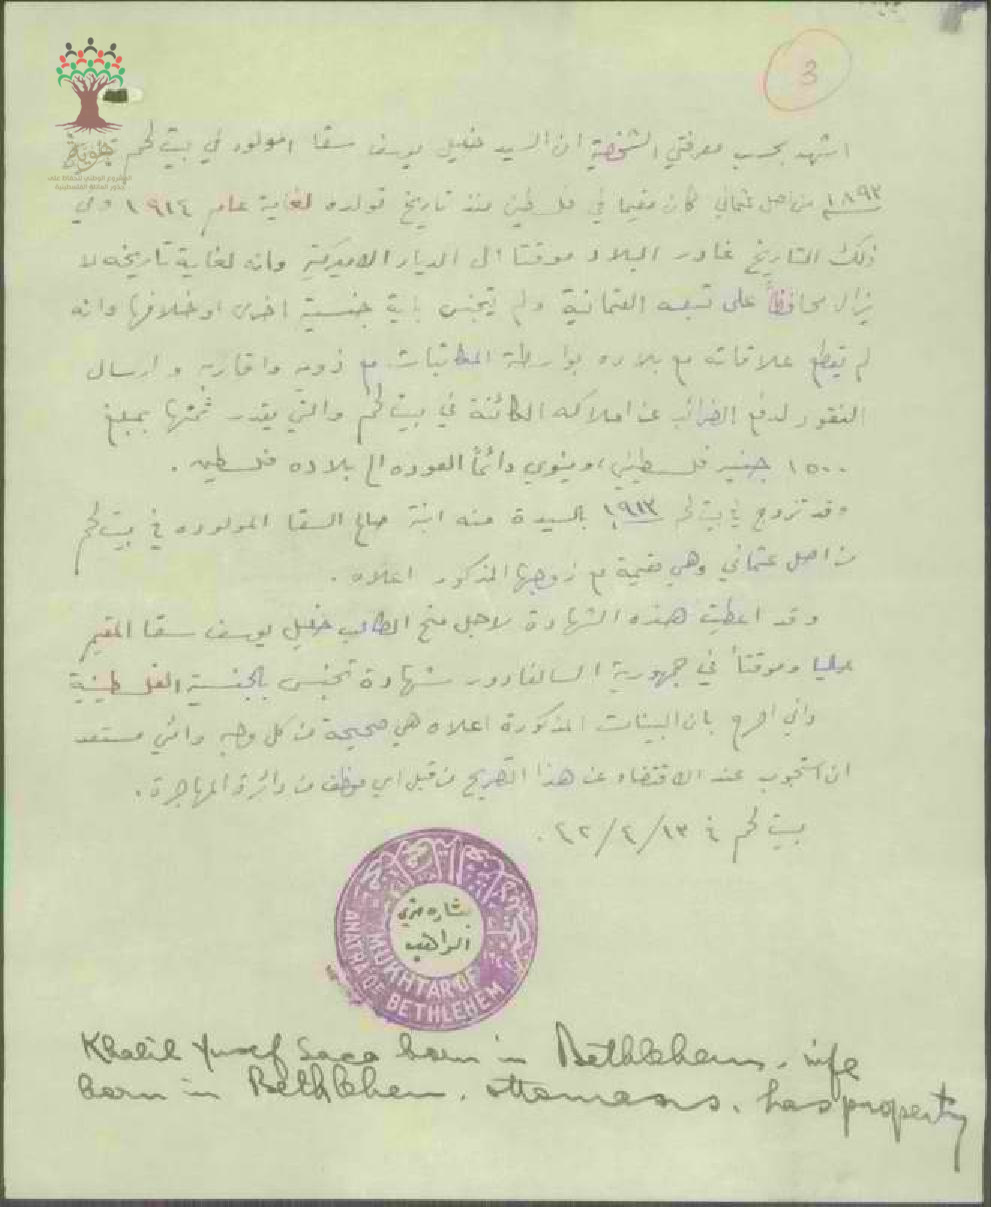 3
هوية
المشروع الوطني للحفاظ على
جذور العائلة الفلسطينية
اشهد بحسب معرفتي الشخصية ان السيد خليل يوسف سقا المولود في بيت لحم
١٨٩٣ من اصل عثماني كان مقيما في فلسطين منذ تاريخ تولده لغاية عام ١٩١٤ وفي
ذلك التاريخ غادر البلاد موقتا الى الديار الاميركية وانه لغاية تاريخه لا
يزال محافظاً على تبعته العثمانية ولم يتجنس باية جنسية اخرى او خلافها وانه
لم يقطع علاقاته مع بلاده بواسطة المكاتبات مع ذويه واقاربه وارسال
النقود لدفع الضرائب عن املاكه الكائنة في بيت لحم والتي يقدر ثمنها بمبلغ
١٥٠٠ جنيه فلسطيني، وينوي دائماً العوده الى بلاده فلسطين .
وقد تزوج في بيت لحم ١٩١٣ بالسيدة منه ابنة صالح السقا المولوده في بيت لحم
من اصل عثماني وهي مقيمة مع زوجها المذكور اعلاه .
وقد اعطيت هذه الشهادة لاجل منح الطالب خليل يوسف سقا المقيم
حاليا وموقتاً في جمهورية السالفادور شهادة تجنس بالجنسية الفلسطينية
واني اصرح بان البينات المذكورة اعلاه هي صحيحة من كل وجه وانني مستعد
ان استجوب عند الاقتضاء عن هذا التصريح من قبل اي موظف من دائرة المهاجرة .
بيت لحم في
بشاره
الراهب
MUKHTAR OF
ANATRA OF BETHLEHEM
Khalil Yusef Saca born in Bethlehem, wife
born in Bethlehem, ottomans, has property